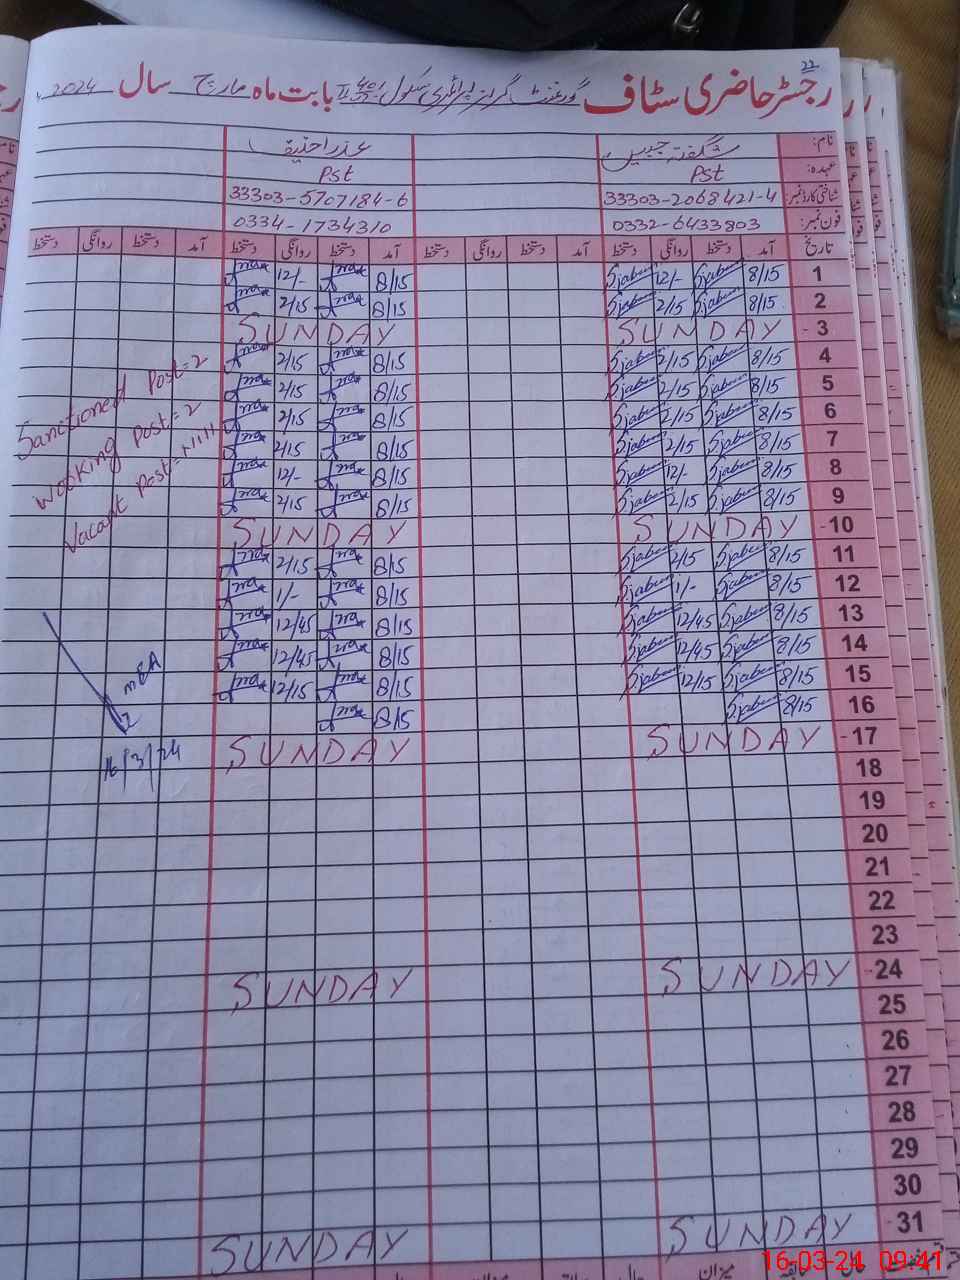 22
رجسٹر حاضری سٹاف گورنمنٹ گرلز پرائمری سکول بابت ماہ مارچ سال 2024
نام: شگفتہ جبیں عذرا حنیف
عہدہ: Pst Pst
شناختی کارڈ نمبر: 33303-2068421-4 33303-5707184-6
فون نمبر: 0332-6433803 0334-1734310
تاریخ آمد دستخط روانگی دستخط آمد دستخط روانگی دستخط آمد دستخط روانگی دستخط آمد دستخط روانگی دستخط
1 8/15 Sjabeen 12/- Sjabeen 8/15 12/-
2 8/15 Sjabeen 2/15 Sjabeen 8/15 2/15
3 SUNDAY SUNDAY
4 8/15 Sjabeen 2/15 Sjabeen 8/15 2/15
5 8/15 Sjabeen 2/15 Sjabeen 8/15 2/15
6 8/15 Sjabeen 2/15 Sjabeen 8/15 2/15
7 8/15 Sjabeen 2/15 Sjabeen 8/15 2/15
8 8/15 Sjabeen 12/- Sjabeen 8/15 12/-
9 8/15 Sjabeen 2/15 Sjabeen 8/15 2/15
10 SUNDAY SUNDAY
11 8/15 Sjabeen 2/15 Sjabeen 8/15 2/15
12 8/15 Sjabeen 1/- Sjabeen 8/15 1/-
13 8/15 Sjabeen 12/45 Sjabeen 8/15 12/45
14 8/15 Sjabeen 12/45 Sjabeen 8/15 12/45
15 8/15 Sjabeen 12/15 Sjabeen 8/15 12/15
16 8/15 Sjabeen 8/15
17 SUNDAY SUNDAY
18
19
20
21
22
23
24 SUNDAY SUNDAY
25
26
27
28
29
30
31 SUNDAY SUNDAY
Sanctioned Post=2
Wooking Post=2
Vacant Post=Nill
MEA
16/3/24
میزان
16-03-24 09:41